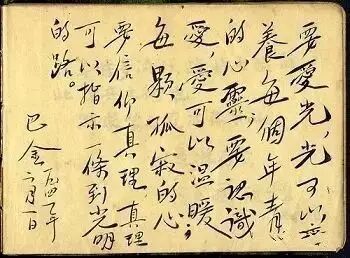 要愛光,光可以
養每個年青
的心靈;要認識
愛,愛可以温暖
每顆孤寂的心;
要信仰真理,真理
可以指示一條到光明
的路。
巴金
一九四 年
月一日